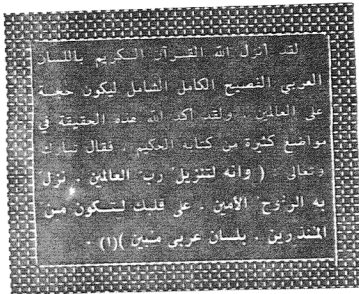 لقد أنزل الله القرآن الكريم باللسان
العربي الفصيح الكامل الشامل ليكون حجة
على العالمين . ولقد أكد الله هذه الحقيقة في
مواضع كثيرة من كتابه الحكيم . فقال تبارك
وتعالى : ( وانه لتنزيل رب العالمين . نزل
به الروح الأمين . على قلبك لتكون من
المنذرين . بلسان عربى مبين )(١) .